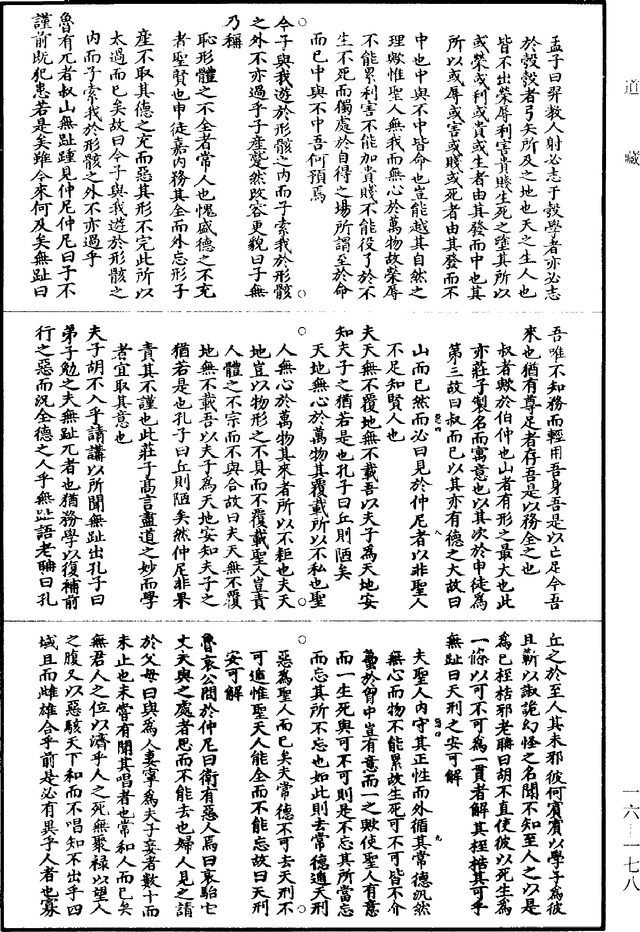 道藏
孟子曰羿教人射必志于彀學者亦必志
於彀彀者弓矢所及之地也天之生人也
皆不出榮辱利害貴賤生死之塗其所以
或榮或利或貴或生者由其發而中也其
所以或辱或害或賤或死者由其發而不
中也中與不中皆命也豈能越其自然之
理歟惟聖人無我而無心於萬物故榮辱
不能累利害不能加貴賤不能役了於不
生不死而獨處於自得之場所謂至於命
而已中與不中吾何預焉
今子與我遊於形骸之內而子索我於形骸
之外不亦過乎子產蹵然改容更貌曰子無
乃稱
恥形體之不全者常人也愧盛德之不充
者聖賢也申徒嘉內務其全而外忘形子
產不取其德之充而惡其形不完此所以
太過而已矣故曰今子與我遊於形骸之
內而子索我於形骸之外不亦過乎
魯有兀者叔山無趾踵見仲尼仲尼曰子不
謹前既犯患若是矣雖今來何及矣無趾曰
吾唯不知務而輕用吾身吾是以亡足今吾
來也猶有尊足者存吾是以務全之也
叔者歟於伯仲也山者有形之最大也此
亦莊子製名而寓意也以其次於申徒為
第三故曰叔而已以其亦有德之大故曰
山而已然而必曰見於仲尼者以非聖人
不足知賢人也
夫天無不覆地無不載吾以夫子為天地安
知夫子之猶若是也孔子曰丘則陋矣
天地無心於萬物其覆載所以不私也聖
人無心於萬物其來者所以不距也夫天
地豈以物形之不具而不覆載聖人豈責
人體之不宗而不與合故曰夫天無不覆
地無不載吾以夫子為天地安知夫子之
猶若是也孔子曰丘則陋矣然仲尼非果
責其不謹也此莊子高言盡道之妙而學
者宜取其意也
夫子胡不入乎請講以所聞無趾出孔子曰
弟子勉之夫無趾兀者也猶務學以復補前
行之惡而況全德之人乎無趾語老聃曰孔
丘之於至人其未邪彼何賓賓以學子為彼
且蘄以諔詭幻怪之名聞不知至人之以是
為己桎梏邪老聃曰胡不直使彼以死生為
一條以可不可為一貫者解其桎梏其可乎
無趾曰天刑之安可解
夫聖人內守其正性而外循其常德汎然
無心而物不能累故生死可不可皆不介
蠆於胷中豈有意而一之歟使聖人有意
而一生死與可不可則是不忘其所當忘
而忘其所不忘也如此則去常德遁天刑
惡為聖人而已矣夫常德不可去天刑不
可遁惟聖天人能全而不能忘故曰天刑
安可解
魯哀公問於仲尼曰衛有惡人焉曰哀駘它
丈夫與之處者思而不能去也婦人見之請
於父母曰與為人妻寧為夫子妾者數十而
未止也未嘗有聞其唱者也常和人而已矣
無君人之位以濟乎人之死無聚祿以望人
之腹又以惡駭天下和而不唱知不出乎四
域且而雌雄合乎前是必有異乎人者也寡
一六—一七八